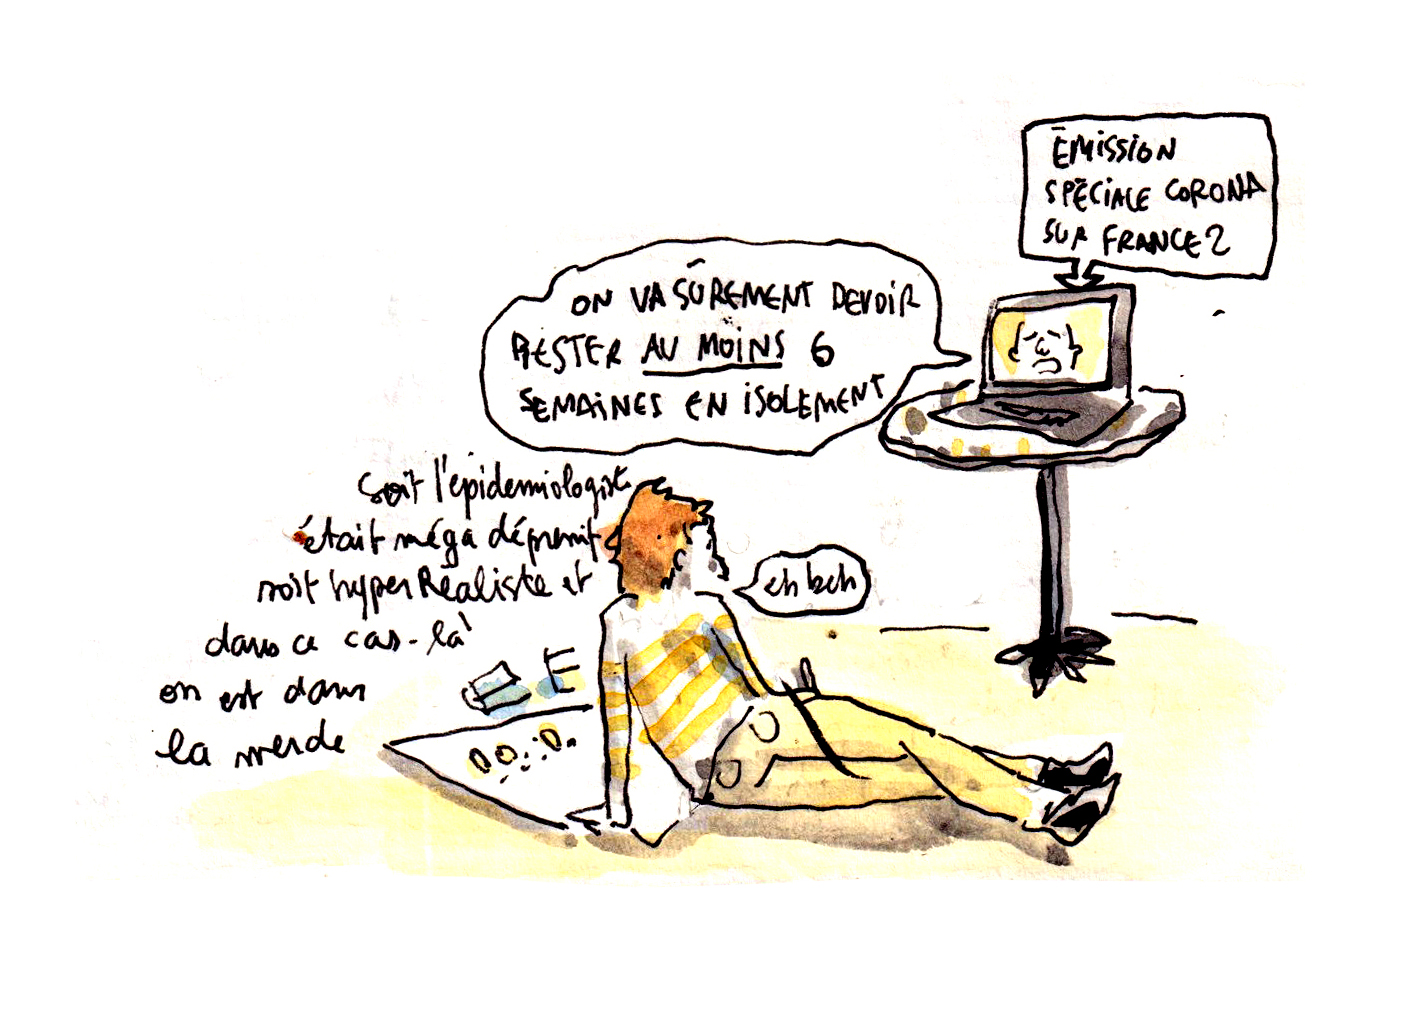 ÉMISSION
SPÉCIALE CORONA
SUR FRANCE 2
ON VA SÛREMENT DEVOIR
RESTER AU MOINS 6
SEMAINES EN ISOLEMENT
soit l'épidemiologiste
était méga dépressif
soit hyper Réaliste et
dans ce cas-là
on est dans
la merde
eh beh